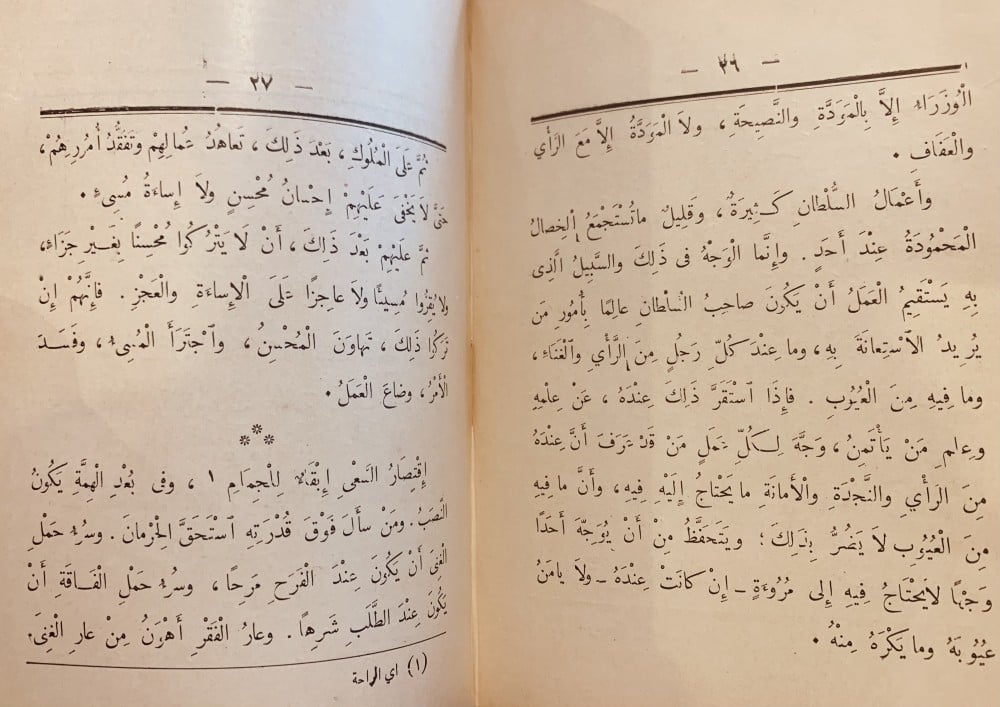 — ٢٦ —
الْوُزَرَاءُ إِلاَّ بِالْمَوَدَّةِ والنَّصِيحَةِ، ولاَ الْمَوَدَّةُ إِلاَّ مَعَ الرَّأْيِ
والْعَفَافِ.
وأَعْمَالُ السُّلْطَانِ كَثِيرَةٌ، وَقَلِيلٌ مَاتُسْتَجْمَعُ الْخِصَالُ
الْمَحْمُودَةُ عِنْدَ أَحَدٍ. وإِنَّمَا الْوَجْهُ فى ذَلِكَ والسَّبِيلُ الَّذِى
بِهِ يَسْتَقِيمُ الْعَمَلُ أَنْ يَكُونَ صاحِبُ السُّلْطَانِ عالِمًا بِأُمُورِ مَن
يُرِيدُ الاْسْتِعانَةَ بِهِ، وما عِنْدَ كُلِّ رَجُلٍ مِنَ الرَّأْيِ والْغَنَاءِ،
وما فِيهِ مِنَ الْعُيُوبِ. فَإِذَا ٱسْتَقَرَّ ذَلِكَ عِنْدَهُ، عَنْ عِلْمِهِ
وعِلمِ مَنْ يَأْتَمِنُ، وَجَّهَ لِكُلِّ عَمَلٍ مَنْ قَدْ عَرَفَ أَنَّ عِنْدَهُ
مِنَ الرَأْيِ والنَّجْدَةِ والْأَمَانَةِ مايَحْتَاجُ إِلَيْهِ فِيهِ، وأَنَّ ما فِيهِ
مِنَ الْعُيُوبِ لاَ يَضُرُّ بِذلِكَ؛ ويَتَحَفَّظُ مِنْ أَنْ يُوَجِّهَ أَحَدًا
وَجْهًا لاَيَحْتَاجُ فِيهِ إِلى مُرُوءَةٍ ـ إِنْ كانَتْ عِنْدَهُ ـ ولاَ يامَنُ
عُيُوبَهُ وما يَكْرَهُ مِنْهُ.
— ٢٧ —
ثُمَّ عَلَى الْمُلُوكِ، بَعْدَ ذَلِكَ، تَعاهُدُ عُمَّالِهِمْ وَتَفَقُّدُ أُمُورِهِمْ،
حَتَّى لاَيَخْفَى عَلَيْهِمْ إِحْسانُ مُحْسِنٍ ولاَ إِساءَةُ مُسِىءٍ.
ثُمَّ عَلَيْهِمْ بَعْدَ ذَلِكَ، أَنْ لاَ يَتْرُكُوا مُحْسِنًا بِغَيْرِ جَزَاءٍ،
ولا يُقِرُّوا مُسِيئًا ولاَ عاجِزًا عَلَى الْإِساءَةِ والْعَجْزِ. فَإِنَّهُمْ إِنْ
تَرَكُوا ذَلِكَ، تَهاوَنَ الْمُحْسِنُ، وٱجْتَرَأَ الْمُسِىءُ، وفَسَدَ
الْأَمْرُ، وضاعَ الْعَمَلُ.
***
إِقْتِصَارُ السَّعْىِ إِبْقَاءٌ لِلْجِمَامِ ١، وفى بُعْدِ الْهِمَّةِ يَكُونُ
النَّصَبُ. ومَنْ سأَلَ فَوْقَ قُدْرَتِهِ ٱسْتَحَقَّ الْحِرْمانَ. وسُوءُ حَمْلِ
الْغِنَى أَنْ يَكُونَ عِنْدَ الْفَرَحِ مَرِحًا، وسُوءُ حَمْلِ الْفَاقَةِ أَنْ
يَكُونَ عِنْدَ الطَّلَبِ شَرِهًا. وعارُ الْفَقْرِ أَهْوَنُ مِنْ عارِ الْغِنَى.
(١) اي الراحة